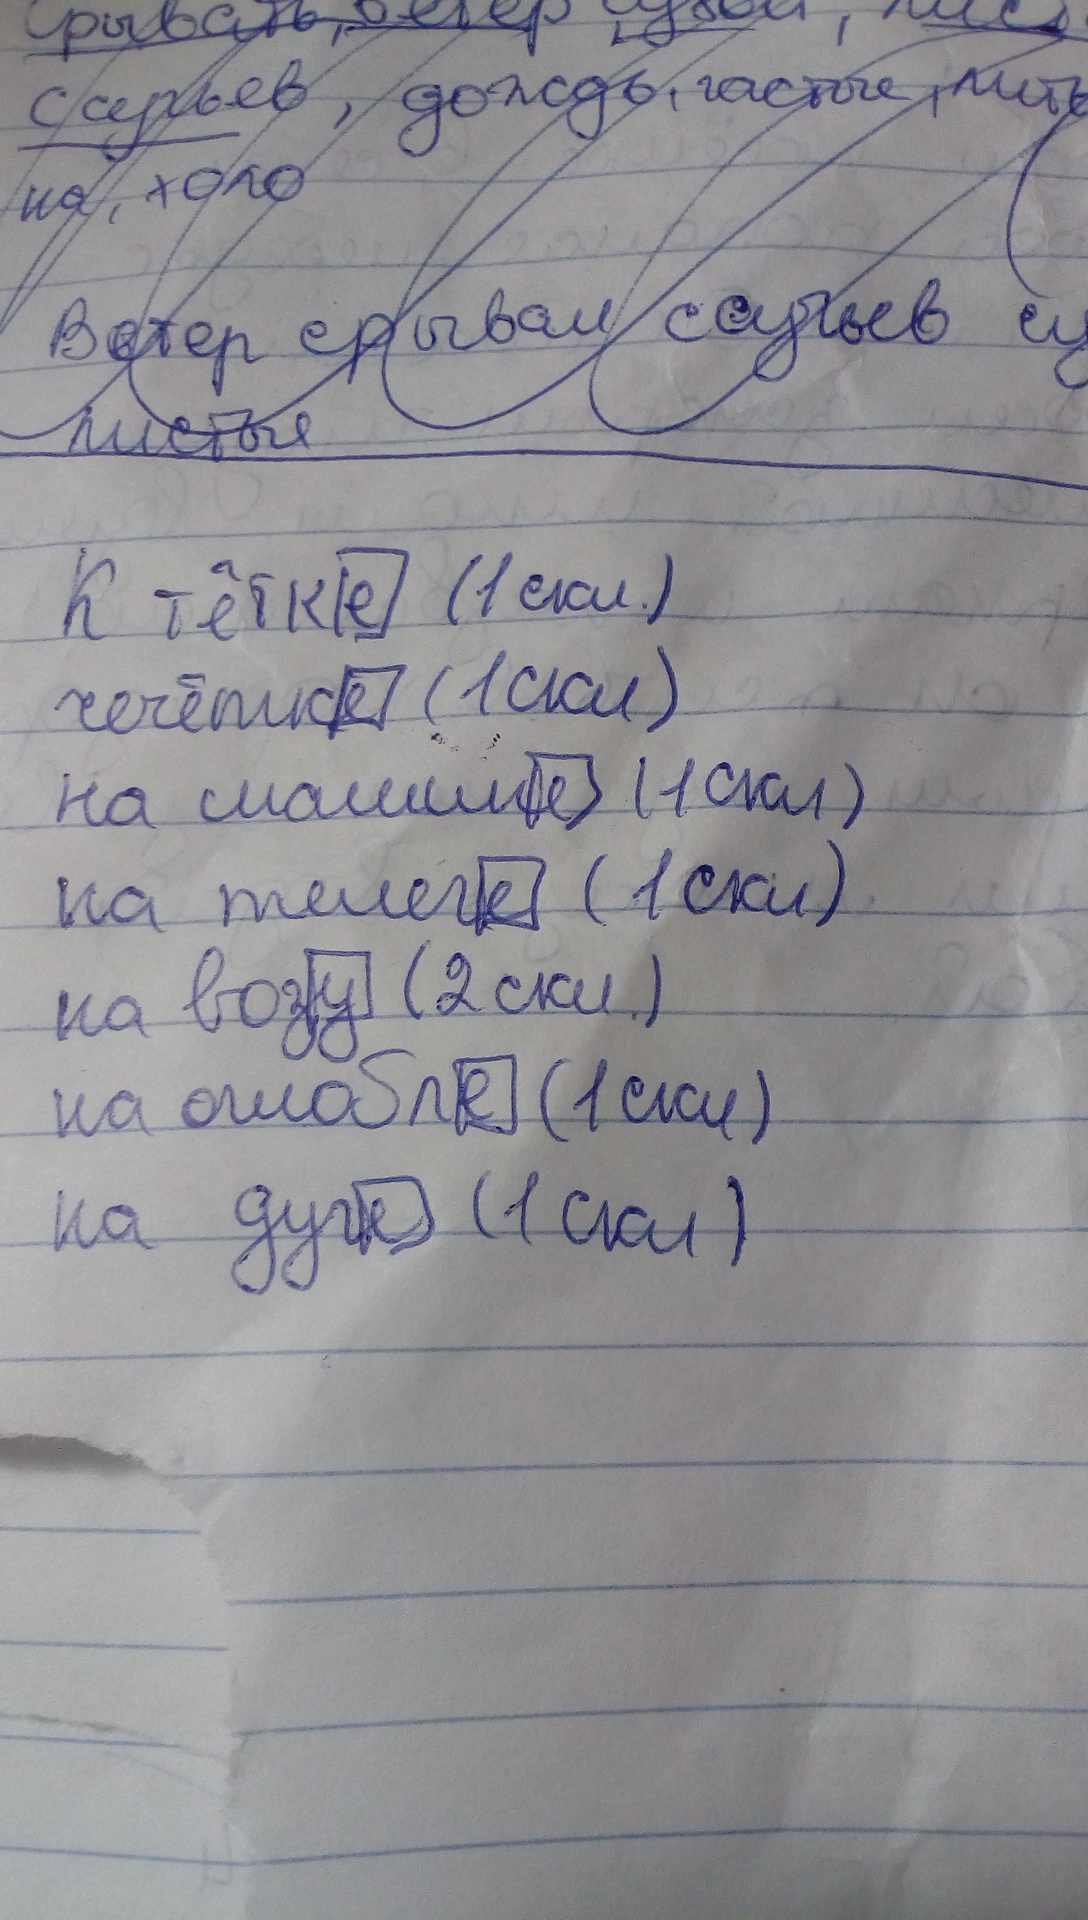 срывать, ветер, сухой, лист
ссучьев, дождь, частые, лить
на, холо
Ветер срывал ссучьев су
листые
К тётке (1 скл.)
чечётке (1 скл)
на машине (1 скл)
на телеге (1 скл)
на возу (2 скл.)
на оглобле (1 скл)
на дуге (1 скл)